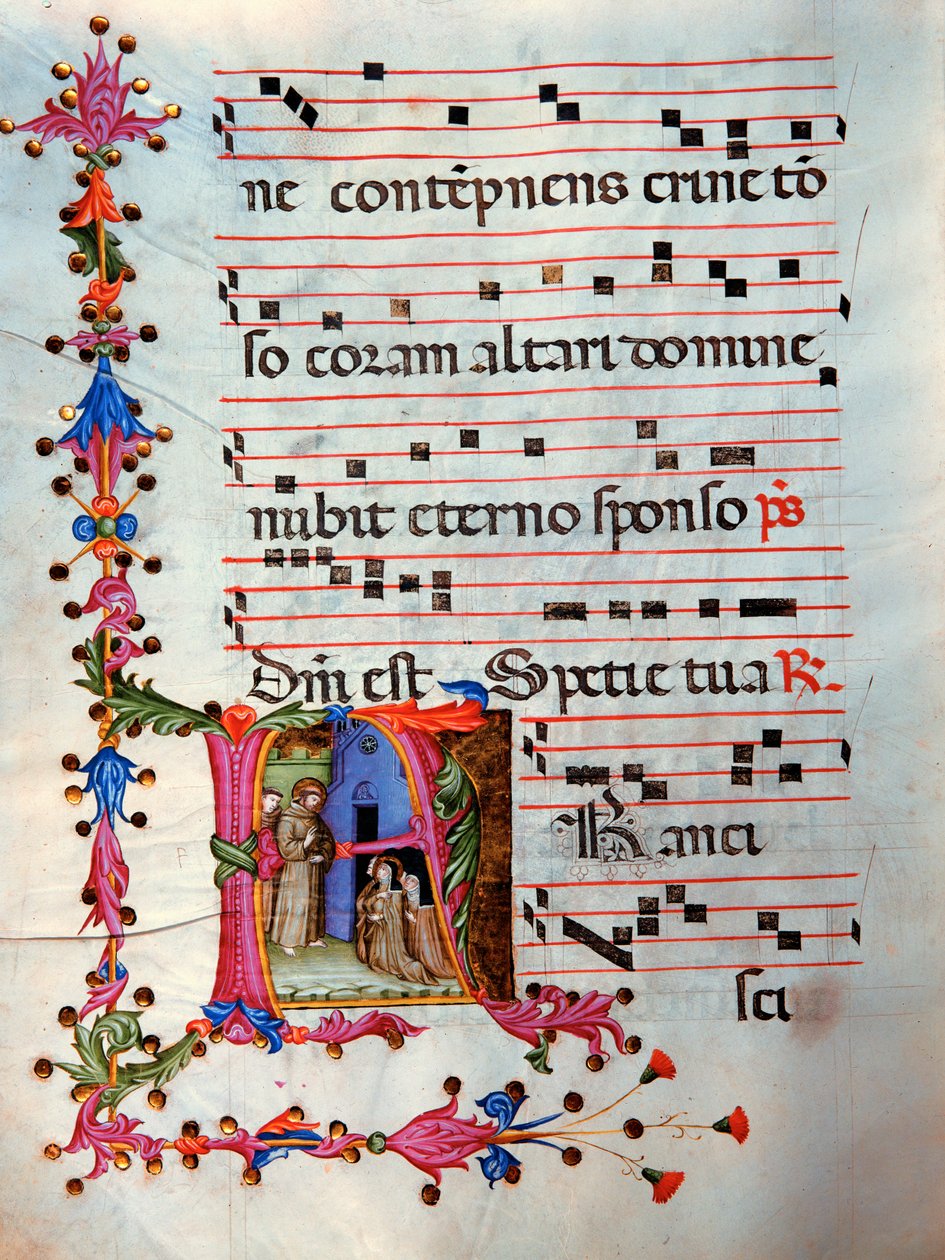 ne contēpnens crine tō
so coram altari domine
nubit eterno sponso p̄s
Dn̄i est Spetie tua R.
F Ranci
sci